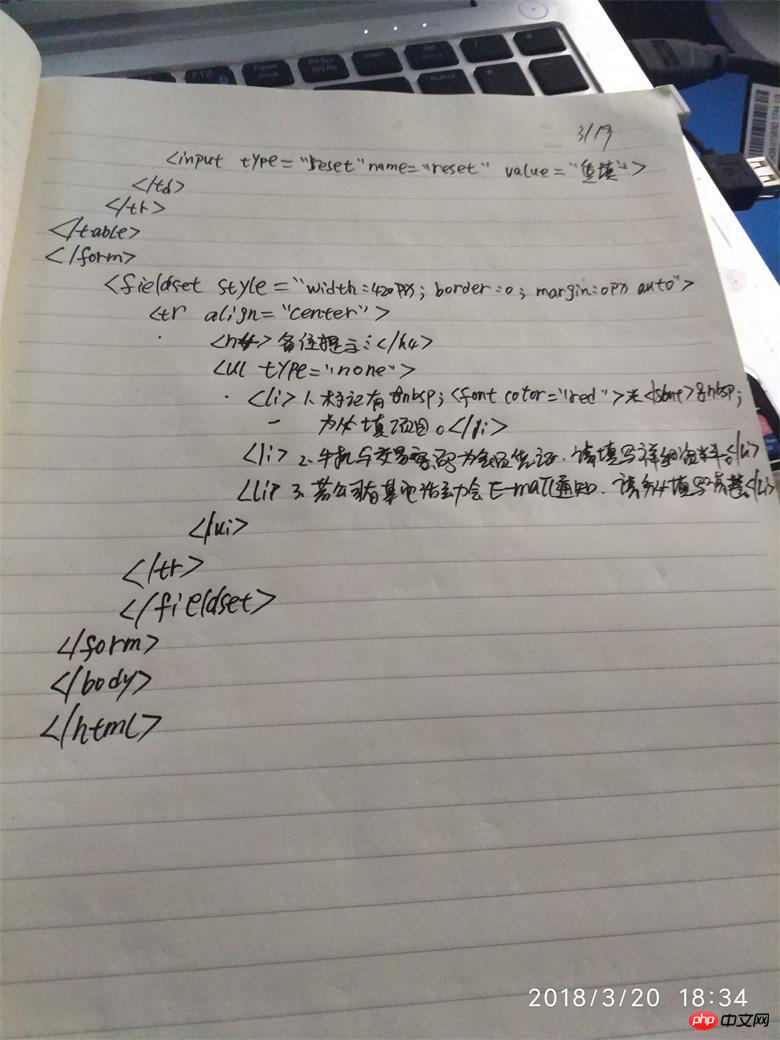 3/19
<input type="reset" name="reset" value="重填">
</td>
</tr>
</table>
</form>
<fieldset style="width:420px; border:0; margin:0px auto">
<tr align="center">
<h4> </h4>
<ul type="none">
<li> 1、标记有&nbsp;<font color="red">*</font>&nbsp;
为必填项目。</li>
<li> 2、 请填写详细资料。</li>
<li> 3、若公司有其 活动会E-mail通知、 </li>
</ul>
</tr>
</fieldset>
</form>
</body>
</html>
2018/3/20 18:34
php 中文网